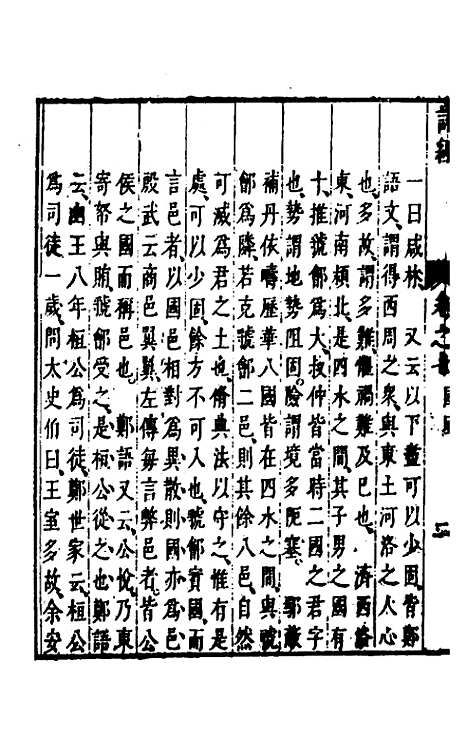 一曰咸林　又云以下盡可以少固皆鄭
語文謂得西周之衆與東土河洛之人心
也多故謂多難懼禍難及已也　濟西洛
東河南頴北是四水之間其子男之國有
十推虢鄶爲大叔仲皆當時二國之君字
也勢謂地勢阻固險謂境多阨塞　鄢蔽
補丹依疇歷華八國皆在四水之間與虢
鄶爲隣若克虢鄶二邑則其餘八邑自然
可滅爲君之土也脩典法以守之惟有是
處可以少固餘方不可入也虢鄶實國而
言邑者以國邑相對爲異散則國亦爲邑
殷武云商邑翼翼左傳每言弊邑者皆公
侯之國而稱邑也　鄭語又云公悅乃東
寄帑與賄虢鄶受之是桓公從之也鄭語
云幽王八年桓公爲司徒鄭世家云桓公
爲司徒一歲問太史伯曰王室多故余安